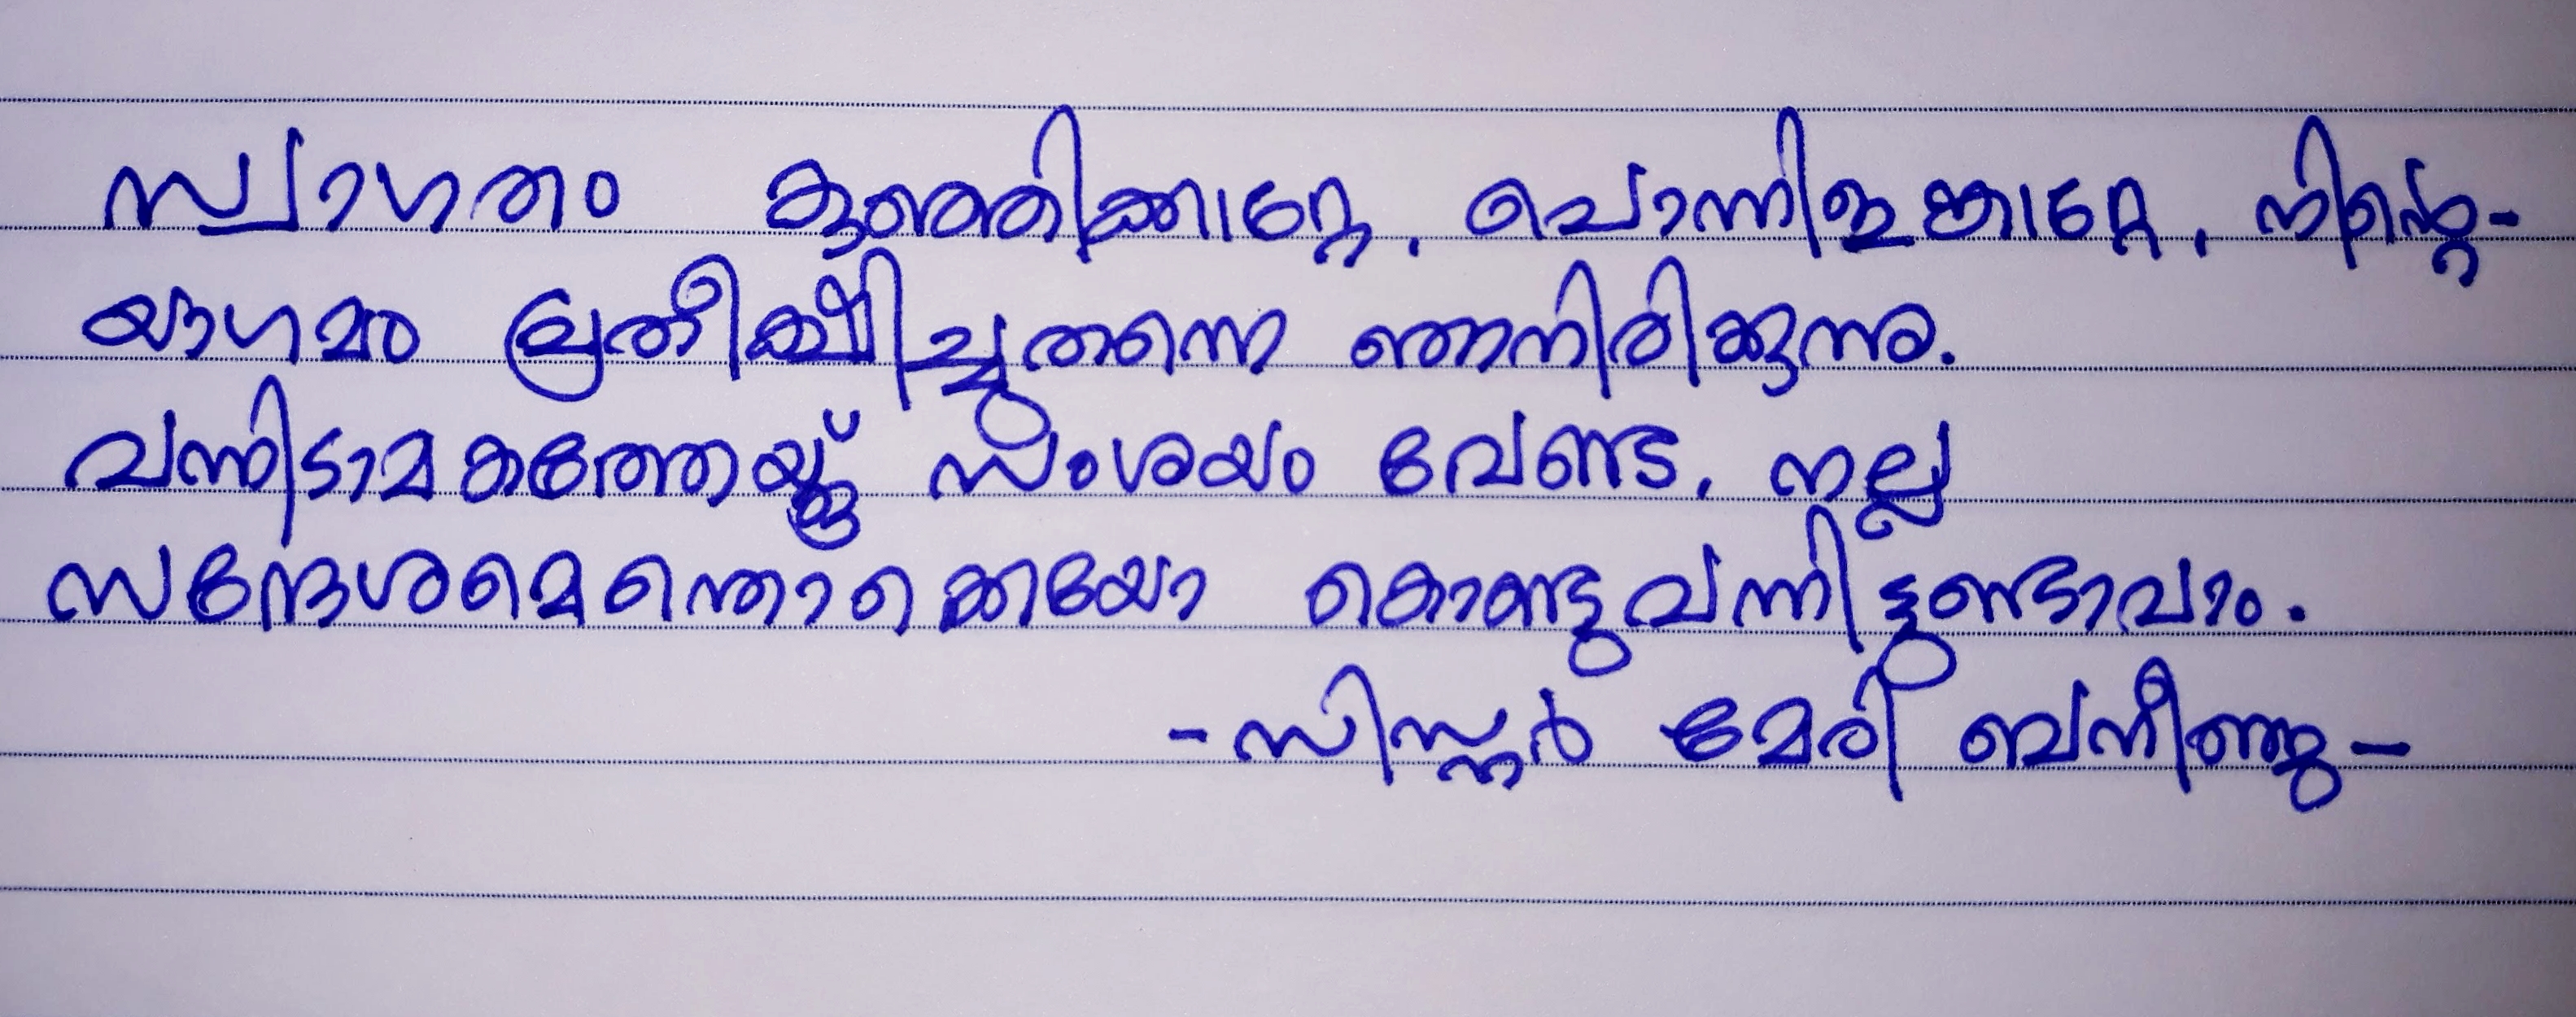 സ്വാഗതം കുഞ്ഞിക്കാറ്റേ, പൊന്നിളങ്കാറ്റേ, നിന്റെ-
യാഗമം പ്രതീക്ഷിച്ചുതന്നെ ഞാനിരിക്കുന്നു.
വന്നിടാമകത്തേയ്ക്കു് സംശയം വേണ്ട, നല്ല
സന്ദേശമെന്തൊക്കെയോ കൊണ്ടുവന്നിട്ടുണ്ടാവാം.
-സിസ്റ്റർ മേരി ബനീഞ്ജ-